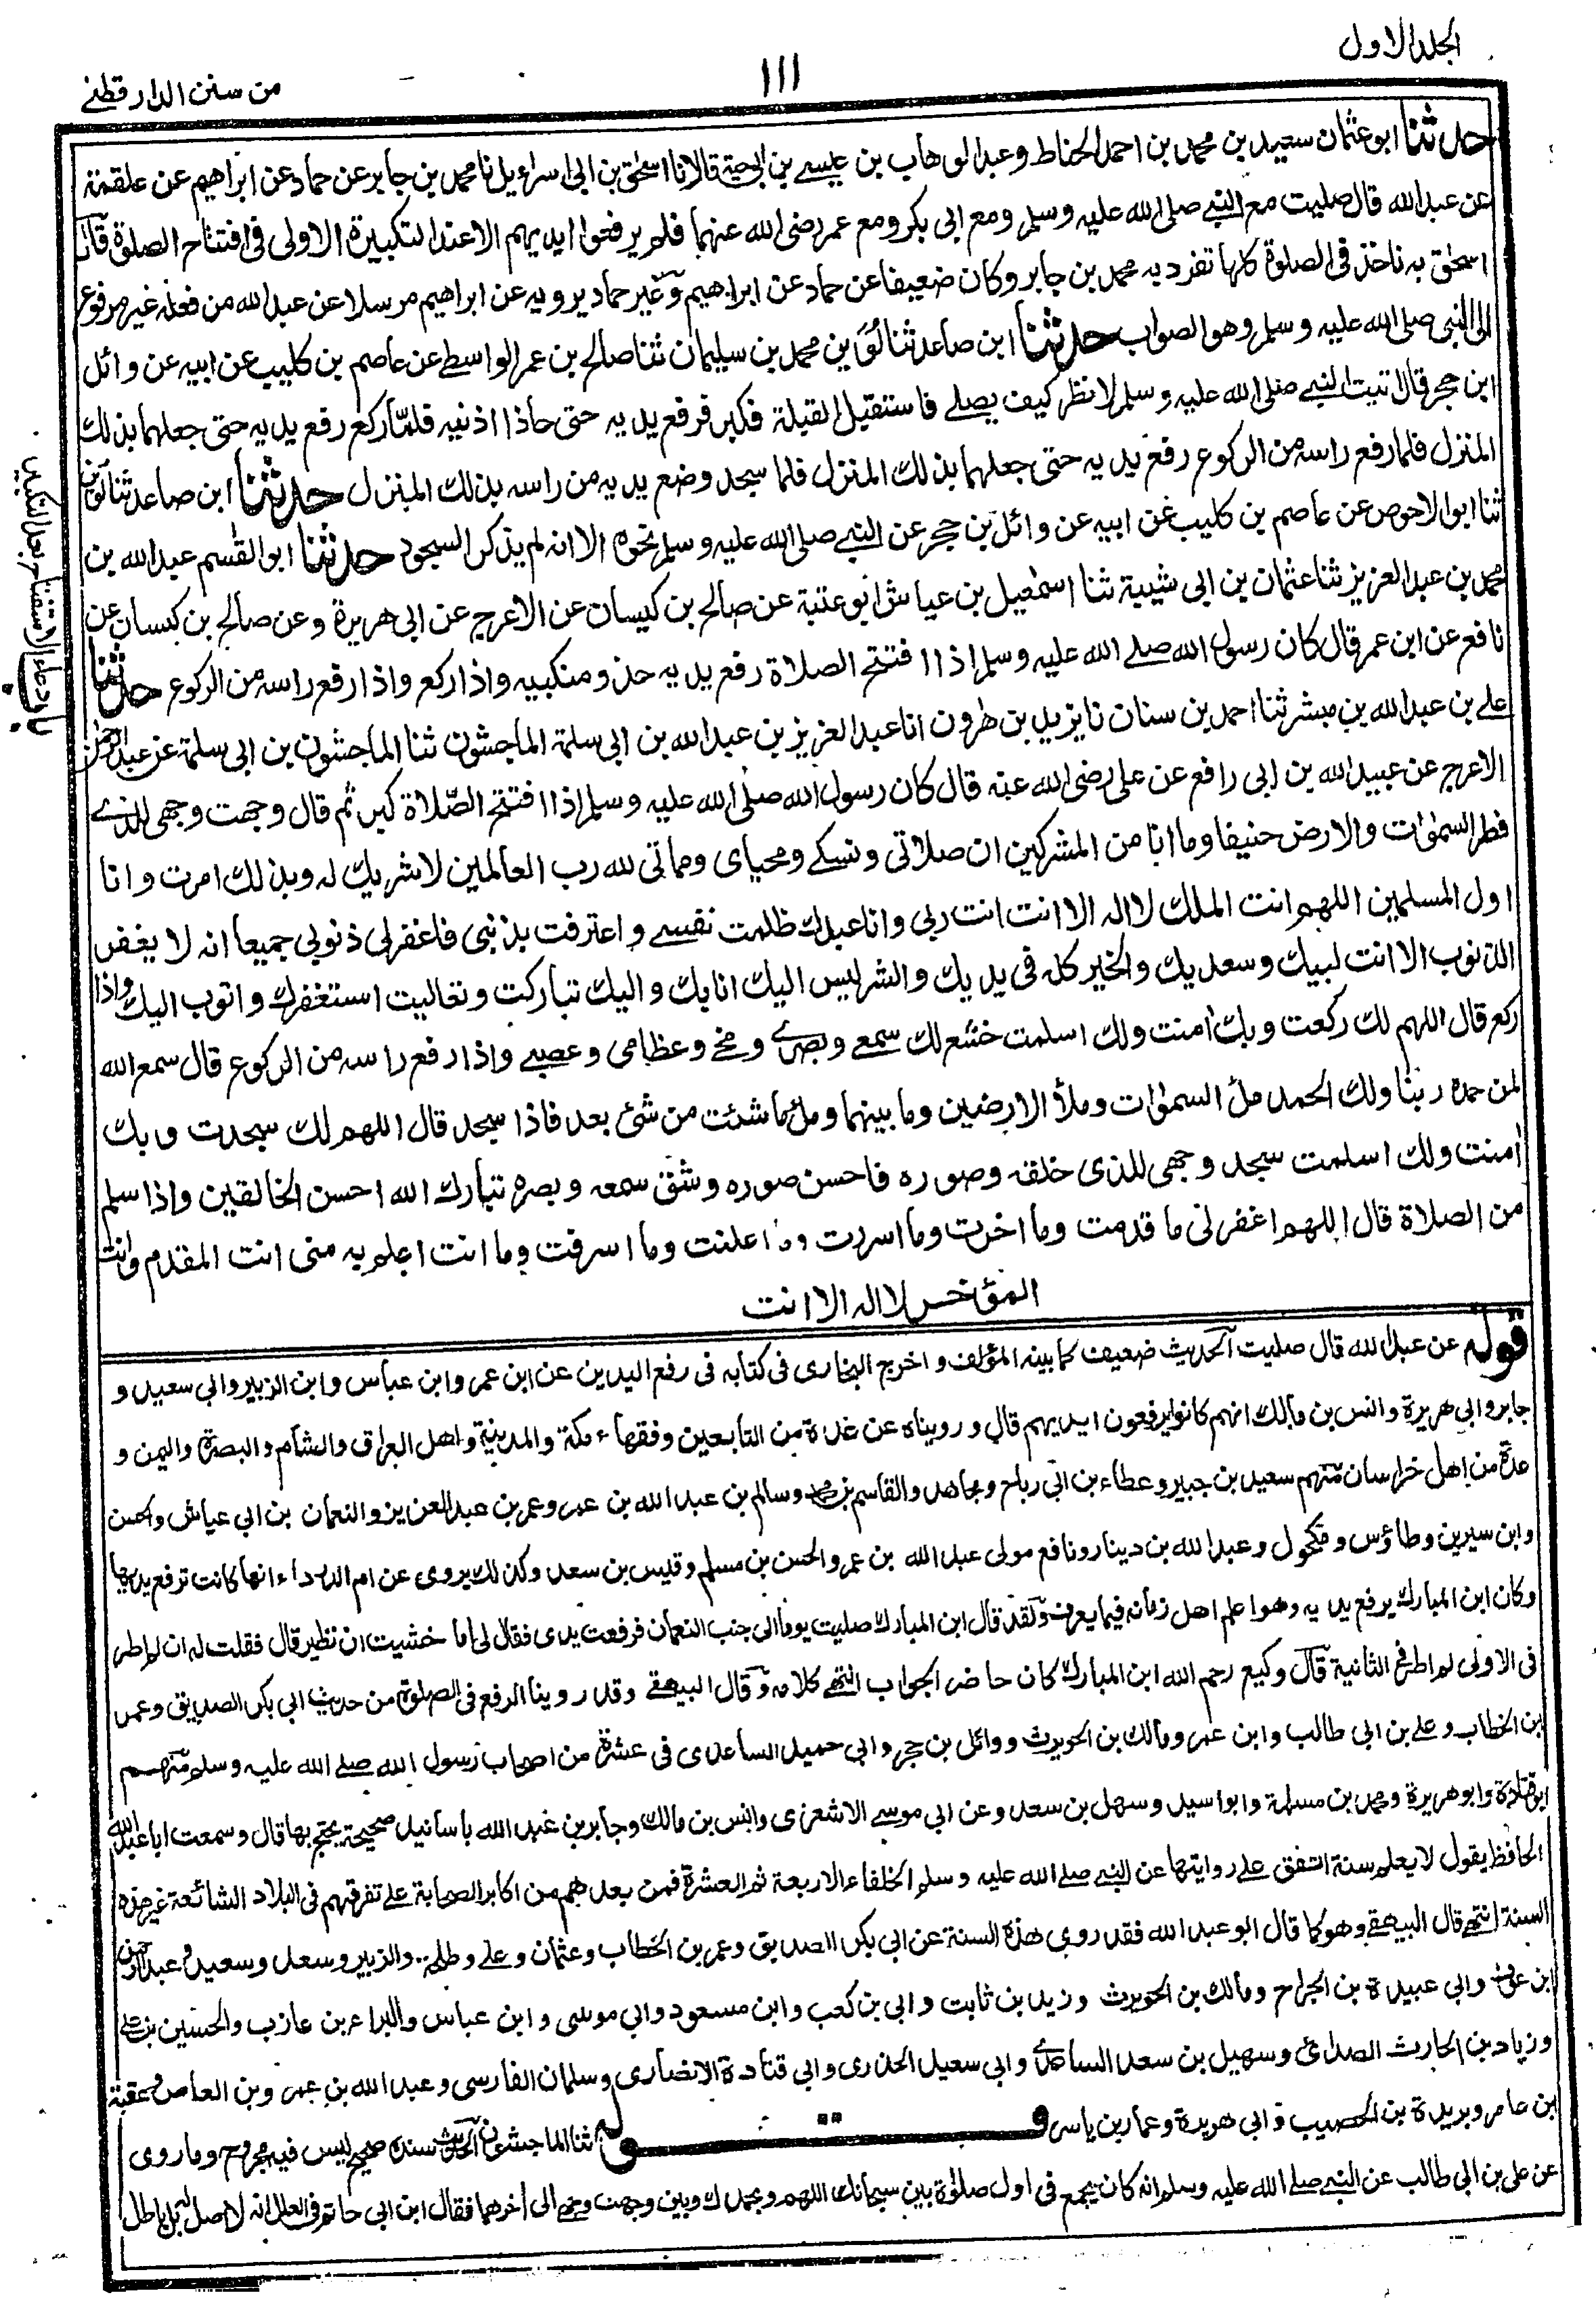 الجلد الاول
١١١
من سنن الدارقطنے
حدثنا ابو عثمان سعيد بن محمد بن احمد الحناط وعبد الوهاب بن عيسے بن ابی حية قالا نا اسحٰق بن ابی اسراءيل نا محمد بن جابر عن حماد عن ابراهيم عن علقمة
عن عبد الله قال صليت مع النبے صلی الله عليه وسلم ومع ابی بكر ومع عمر رضی الله عنهما فلم يرفعوا ايديهم الا عند التكبيرة الاولی فی افتتاح الصلوة قال
اسحٰق به ناخذ فی الصلوة كلها تفرد به محمد بن جابر وكان ضعيفا عن حماد عن ابراهيم وغير حماد يرويه عن ابراهيم مرسلا عن عبد الله من فعله غير مرفوع
الی النبی صلی الله عليه وسلم وهو الصواب حدثنا ابن صاعد ثنا لوين محمد بن سليمان ثنا صالح بن عمر الواسطے عن عاصم بن كليب عن ابيه عن وائل
ابن حجر قال اتيت النبے صلی الله عليه وسلم لانظر كيف يصلے فاستقبل القبلة فكبر فرفع يديه حتی حاذا اذنيه فلمّا ركع رفع يديه حتی جعلهما بذلك
المنزل فلما رفع راسه من الركوع رفع يديه حتی جعلهما بذلك المنزل فلما سجد وضع يديه من راسه بذلك المنزل حدثنا ابن صاعد ثنا لوين
ثنا ابو الاحوص عن عاصم بن كليب عن ابيه عن وائل بن حجر عن النبے صلی الله عليه وسلم نحوه الا انه لم يذكر السجود حدثنا ابو القٰسم عبد الله بن
محمد بن عبد العزيز ثنا عثمان بن ابی شيبة ثنا اسمٰعيل بن عياش ابو عتبة عن صالح بن كيسان عن الاعرج عن ابی هريرة وعن صالح بن كيسان عن
نافع عن ابن عمر قال كان رسول الله صلے الله عليه وسلم اذا افتتح الصلاة رفع يديه حذو منكبيه واذا ركع واذا رفع راسه من الركوع حدثنا
علے بن عبد الله بن مبشر ثنا احمد بن سنان نا يزيد بن هٰرون انا عبد العزيز بن عبد الله بن ابی سلمة الماجشون ثنا الماجشون بن ابی سلمة عن عبد الرحمٰن
الاعرج عن عبيد الله بن ابی رافع عن علی رضی الله عنه قال كان رسول الله صلی الله عليه وسلم اذا افتتح الصّلاة كبر ثم قال وجهت وجهی للذے
فطر السمٰوٰت والارض حنيفا وما انا من المشركين ان صلاتی ونسكے ومحيای ومماتی لله رب العالمين لا شريك له وبذلك امرت وانا
اول المسلمين اللهم انت الملك لا اله الا انت انت ربی وانا عبدك ظلمت نفسے واعترفت بذنبی فاغفر لی ذنوبی جميعا انه لا يغفر
الذنوب الا انت لبيك وسعديك والخير كله فی يديك والشر ليس اليك انا بك واليك تباركت وتعاليت استغفرك واتوب اليك واذا
ركع قال اللهم لك ركعت وبك اٰمنت ولك اسلمت خشع لك سمعے وبصرے ومخے وعظامی وعصبے واذا رفع راسه من الركوع قال سمع الله
لمن حمده ربنا ولك الحمد ملأ السمٰوٰت وملأ الارضين وما بينهما وملأ ما شئت من شئ بعد فاذا سجد قال اللهم لك سجدت وبك
اٰمنت ولك اسلمت سجد وجهی للذی خلقه وصوره فاحسن صوره وشق سمعه وبصره تبارك الله احسن الخالقين واذا سلم
من الصلاة قال اللهم اغفر لی ما قدمت وما اخرت وما اسررت وما اعلنت وما اسرفت وما انت اعلم به منی انت المقدم وانت
المؤخر لا اله الا انت
باب دعاء الاستفتاح بعد التكبير
قوله عن عبد الله قال صليت الحديث ضعيف كما بينه المؤلف واخرج البخاری فی كتابه فی رفع اليدين عن ابن عمر وابن عباس وابن الزبير وابی سعيد و
جابر وابی هريرة وانس بن مالك انهم كانوا يرفعون ايديهم قال وروينا‌ه عن عدة من التابعين وفقهاء مكة والمدينة واهل العراق والشام والبصرة واليمن و
عدة من اهل خراسان منهم سعيد بن جبير وعطاء بن ابی رباح ومجاهد والقاسم بن محمد وسالم بن عبد الله بن عمر وعمر بن عبد العزيز والنعمان بن ابی عياش والحسن
وابن سيرين وطاؤس ومكحول وعبد الله بن دينار ونافع مولی عبد الله بن عمر والحسن بن مسلم وقيس بن سعد وكذلك يروی عن ام الدرداء انها كانت ترفع يديها
وكان ابن المبارك يرفع يديه وهو اعلم اهل زمانه فيما يعرف ولقد قال ابن المبارك صليت يوما الی جنب النعمان فرفعت يدی فقال لی اما خشيت ان تطير قال فقلت له ان لم اطر
فی الاولی لم اطر فی الثانية قال وكيع رحم الله ابن المبارك كان حاضر الجواب انتهے كلامه وقال البيهقے وقد روينا الرفع فی الصلوة من حديث ابی بكر الصديق وعمر
بن الخطاب وعلے بن ابی طالب وابن عمر ومالك بن الحويرث ووائل بن حجر وابی حميد الساعدی فی عشرة من اصحاب رسول الله صلے الله عليه وسلم منهم
ابو قتادة وابو هريرة ومحمد بن مسلمة وابو اسيد وسهل بن سعد وعن ابی موسے الاشعری وانس بن مالك وجابر بن عبد الله باسانيد صحيحة يحتج بها قال وسمعت ابا عبد الله
الحافظ يقول لا يعلم سنة اتفق علے روايتها عن النبے صلے الله عليه وسلم الخلفاء الاربعة ثم العشرة فمن بعدهم من اكابر الصحابة علے تفرقهم فی البلاد الشائعة غير هذه
السنة انتهے قال البيهقے وهو كما قال ابو عبد الله فقد روی هذه السنة عن ابی بكر الصديق وعمر بن الخطاب وعثمان وعلے وطلحة والزبير وسعد وسعيد وعبد الرحمٰن
ابن عوف وابی عبيدة بن الجراح ومالك بن الحويرث وزيد بن ثابت وابی بن كعب وابن مسعود وابی موسی وابن عباس والبراء بن عازب والحسين بن علے
وزياد بن الحارث الصدائی وسهيل بن سعد الساعدے وابی سعيد الخدری وابی قتادة الانصاری وسلمان الفارسی وعبد الله بن عمر وبن العاص وعقبة
بن عامر وبريدة بن الحصيب وابی هريرة وعمار بن ياسر قوله ثنا الماجشون الحديث سنده صحيح ليس فيه مجروح وما روی
عن علی بن ابی طالب عن النبے صلے الله عليه وسلم انه كان يجمع فی اول صلوٰة بين سبحانك اللهم وبحمدك وبين وجهت وجهے الی اٰخرهما فقال ابن ابی حاتم فی العلل انه لا اصل له بل باطل